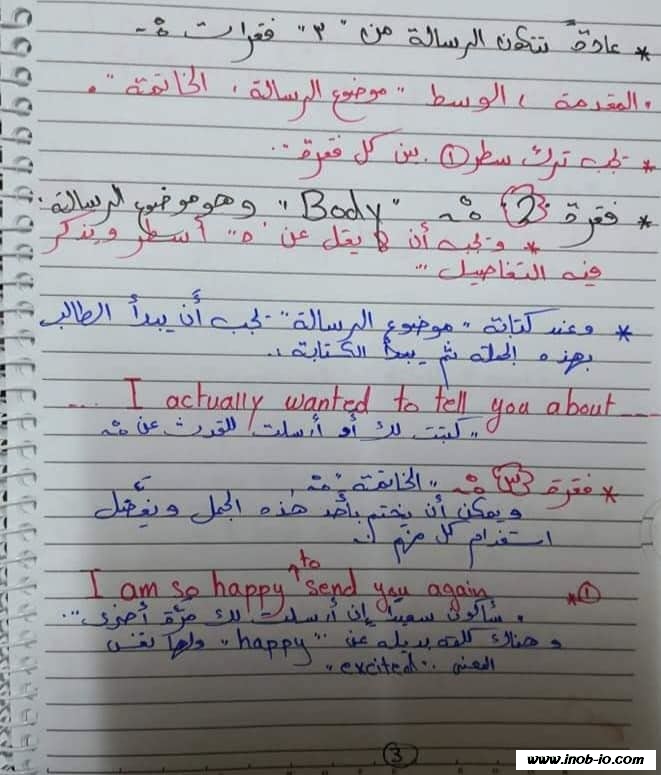 * عادةً تتكون الرسالة من "٣" فقرات :-
المقدمة ، الوسط "موضوع الرسالة ، الخاتمة".
* يجب ترك سطر ① بين كل فقرة..
* فقرة 2 :- "Body" وهو موضوع الرسالة.
* ويجب أن لا يقل عن "٥" أسطر ويذكر
فيه التفاصيل ...
* وعند كتابة "موضوع الرسالة" يجب أن يبدأ الطالب
بهذه الجملة ثم يبدأ الكتابة..
... I actually wanted to tell you about ...
"كتبت لك أو أرسلت للتحدث عن :-
* فقرة ٣ :- "الخاتمة" :-
ويمكن أن يختم بأحد هذه الجمل ويُفضل
استخدام كل منهم ..
*① I am so happy to send you again
سأكون سعيدًا إن أرسلت لك مرّة أخرى..
وهناك كلمة بديلة عن "happy" ولها نفس
المعنى .. "excited"
3
www.inob-io.com